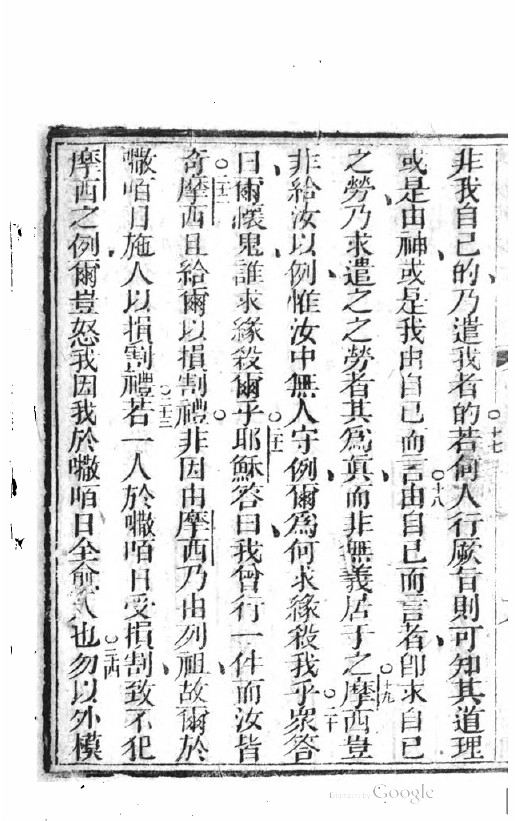 非我自己的乃遣我者的○十七若何人行厥旨則可知其道理
或是由神或是我由自己而言○十八由自己而言者卽求自己
之勞乃求遣之之勞者其為真而非無義居于之○十九摩西豈
非給汝以例惟汝中無人守例爾為何求緣殺我乎○二十眾答
曰爾懷鬼誰求緣殺爾乎○二一耶穌答曰我曾行一件而汝皆
奇○二二摩西且給爾以損割禮非因由摩西乃由列祖故爾於
𠹌咟日施人以損割禮○二三若一人於𠹌咟日受損割致不犯
摩西之例爾豈怒我因我於𠹌咟日全愈人也○二四勿以外模
Digitized by Google